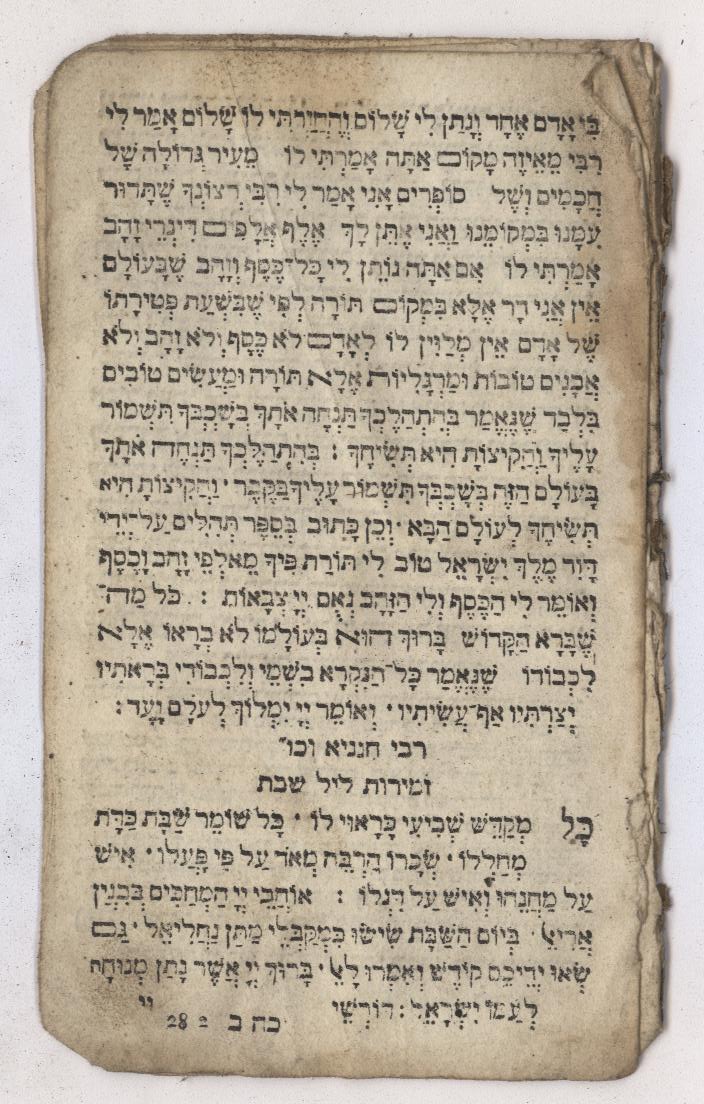 בִּי אָדָם אֶחָד וְנָתַן לִי שָׁלוֹם וְהֶחֱזַרְתִּי לוֹ שָׁלוֹם אָמַר לִי
רִבִּי מֵאֵיזֶה מָקוֹם אַתָּה אָמַרְתִּי לוֹ מֵעִיר גְּדוֹלָה שֶׁל
חֲכָמִים וְשֶׁל סוֹפְרִים אָנִי אָמַר לִי רִבִּי רְצוֹנְךָ שֶׁתָּדוּר
עִמָּנוּ בִּמְקוֹמֵנוּ וַאֲנִי אֶתֵּן לָךְ אֶלֶף אֲלָפִים דִּינְרֵי זָהָב
אָמַרְתִּי לוֹ אִם אַתָּה נוֹתֵן לִי כָּל־כֶּסֶף וְזָהָב שֶׁבָּעוֹלָם
אֵין אֲנִי דָר אֶלָּא בִּמְקוֹם תּוֹרָה לְפִי שֶׁבִּשְׁעַת פְּטִירָתוֹ
שֶׁל אָדָם אֵין מְלַוִּין לוֹ לְאָדָם לֹא כֶּסֶף וְלֹא זָהָב וְלֹא
אֲבָנִים טוֹבוֹת וּמַרְגָּלִיּוֹת אֶלָּא תּוֹרָה וּמַעֲשִׂים טוֹבִים
בִּלְבָד שֶׁנֶּאֱמַר בְּהִתְהַלֶּכְךָ תַּנְחֶה אֹתָךְ בְּשָׁכְבְּךָ תִּשְׁמוֹר
עָלֶיךָ וַהֲקִיצוֹתָ הִיא תְשִׂיחֶךָ : בְּהִתְהַלֶּכְךָ תַּנְחֶה אֹתָךְ
בָּעוֹלָם הַזֶּה בְּשָׁכְבְּךָ תִּשְׁמוֹר עָלֶיךָ בַּקֶּבֶר · וַהֲקִיצוֹתָ הִיא
תְשִׂיחֶךָ לְעוֹלָם הַבָּא · וְכֵן כָּתוּב בְּסֵפֶר תְּהִלִּים עַל־יְדֵי
דָּוִד מֶלֶךְ יִשְׂרָאֵל טוֹב לִי תּוֹרַת פִּיךָ מֵאַלְפֵי זָהָב וָכֶסֶף
וְאוֹמֵר לִי הַכֶּסֶף וְלִי הַזָּהָב נְאֻם יְיָ צְבָאוֹת : כֹּל מַה־
שֶּׁבָּרָא הַקָּדוֹשׁ בָּרוּךְ הוּא בְּעוֹלָמוֹ לֹא בְרָאוֹ אֶלָּא
לִכְבוֹדוֹ שֶׁנֶּאֱמַר כָּל־הַנִּקְרָא בִשְׁמִי וְלִכְבוֹדִי בְּרָאתִיו
יְצַרְתִּיו אַף־עֲשִׂיתִיו · וְאוֹמֵר יְיָ יִמְלוֹךְ לְעֹלָם וָעֶד :
רבי חנניא וכו׳
זמירות ליל שבת
כָּל מְקַדֵּשׁ שְׁבִיעִי כָּרָאוּי לוֹ · כָּל שׁוֹמֵר שַׁבָּת כַּדָּת
מֵחַלְּלוֹ · שְׂכָרוֹ הַרְבֵּה מְאֹד עַל פִּי פָעֳלוֹ · אִישׁ
עַל מַחֲנֵהוּ וְאִישׁ עַל דִּגְלוֹ : אוֹהֲבֵי יְיָ הַמְחַכִּים בְּבִנְיַן
אֲרִיאֵל · בְּיוֹם הַשַּׁבָּת שִׂישׂוּ כִּמְקַבְּלֵי מַתַּן נַחֲלִיאֵל · גַּם
שְׂאוּ יְדֵיכֶם קוֹדֶשׁ וְאִמְרוּ לָאֵל · בָּרוּךְ יְיָ אֲשֶׁר נָתַן מְנוּחָה
לְעַמּוֹ יִשְׂרָאֵל : דּוֹרְשֵׁי יי
כח ב 28 2